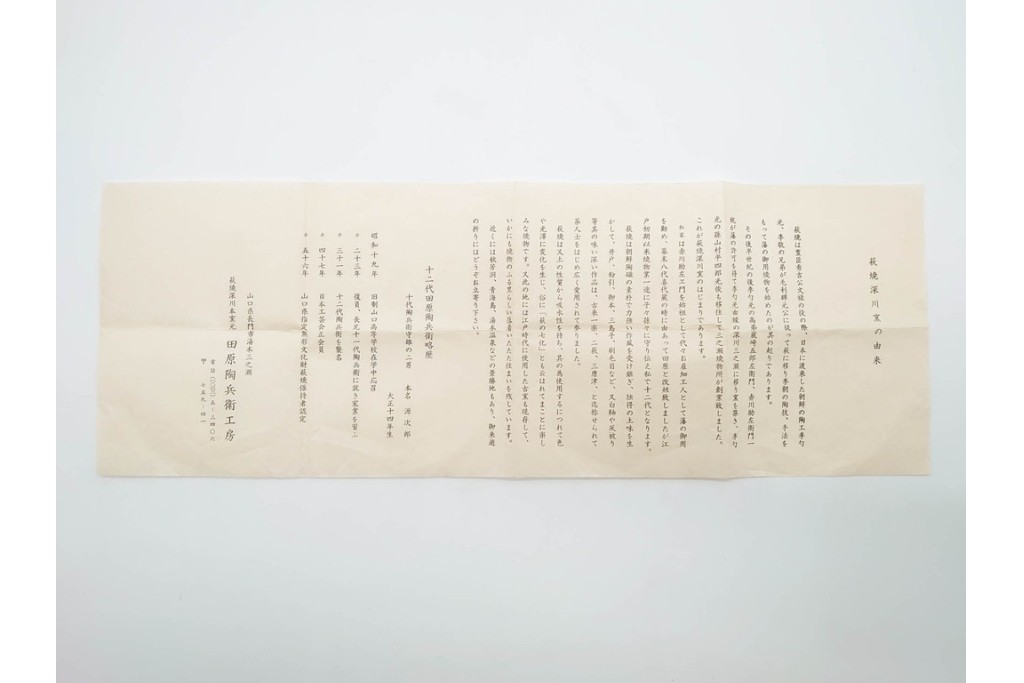 萩焼深川窯の由来
萩焼は豊臣秀吉公文禄の役の際、日本に渡来した朝鮮の陶工李勺
光、李敬の兄弟が毛利輝元公に従って萩に移り李朝の陶技、手法を
もって藩の御用焼物を始めたのが其の起りであります。
その後半世紀の後李勺光の高弟蔵崎五郎左衛門、赤川助左衛門一
統が藩の許可を得て李勺光由縁の深川三之瀬に移り窯を築き、李勺
光の孫山村平四郎光俊も移住して三之瀬焼物所が創業致しました。
これが萩焼深川窯のはじまりであります。
私家は赤川助左エ門を始祖として代々お座細工人として藩の御用
を勤め、幕末八代喜代蔵の時に由あって田原と改姓致しましたが江
戸初期以来焼物業一途に子々孫々に守り伝え私で十二代となります。
萩焼は朝鮮陶磁の素朴で力強い作風を受け継ぎ、独得の土味を生
かして、井戸、粉引、御本、三島手、刷毛目など、又白釉や灰被り
等其の味い深い作品は、古来一楽、二萩、三唐津、と称せられて
茶人士をはじめ広く愛用されて参りました。
萩焼は又土の性質から吸水性を持ち、其の為使用するにつれて色
や光沢に変化を生じ、俗に「萩の七化」とも云はれてまことに楽し
みな焼物です。又此の地には江戸時代に使用した古窯も現存して、
いかにも焼物のふる里らしい落着いたたた住まいを残しています。
近くには秋芳洞、青海島、湯本温泉などの景勝地もあり、御来遊
の折りにはどうぞお立寄り下さい。
十二代田原陶兵衛略歴
十代陶兵衛守雄の二男 本名 源次郎
大正十四年生
昭和十九年 旧制山口高等学校在学中応召
〃 二十三年 復員、長兄十一代陶兵衛に就き家業を習ふ
〃 三十一年 十二代陶兵衛を襲名
〃 四十七年 日本工芸会正会員
〃 五十六年 山口県指定無形文化財萩焼保持者認定
山口県長門市湯本三之瀬
萩焼深川本窯元 田原陶兵衛工房
電話(〇八三七二)五-三四〇六
〒 七五九-四一